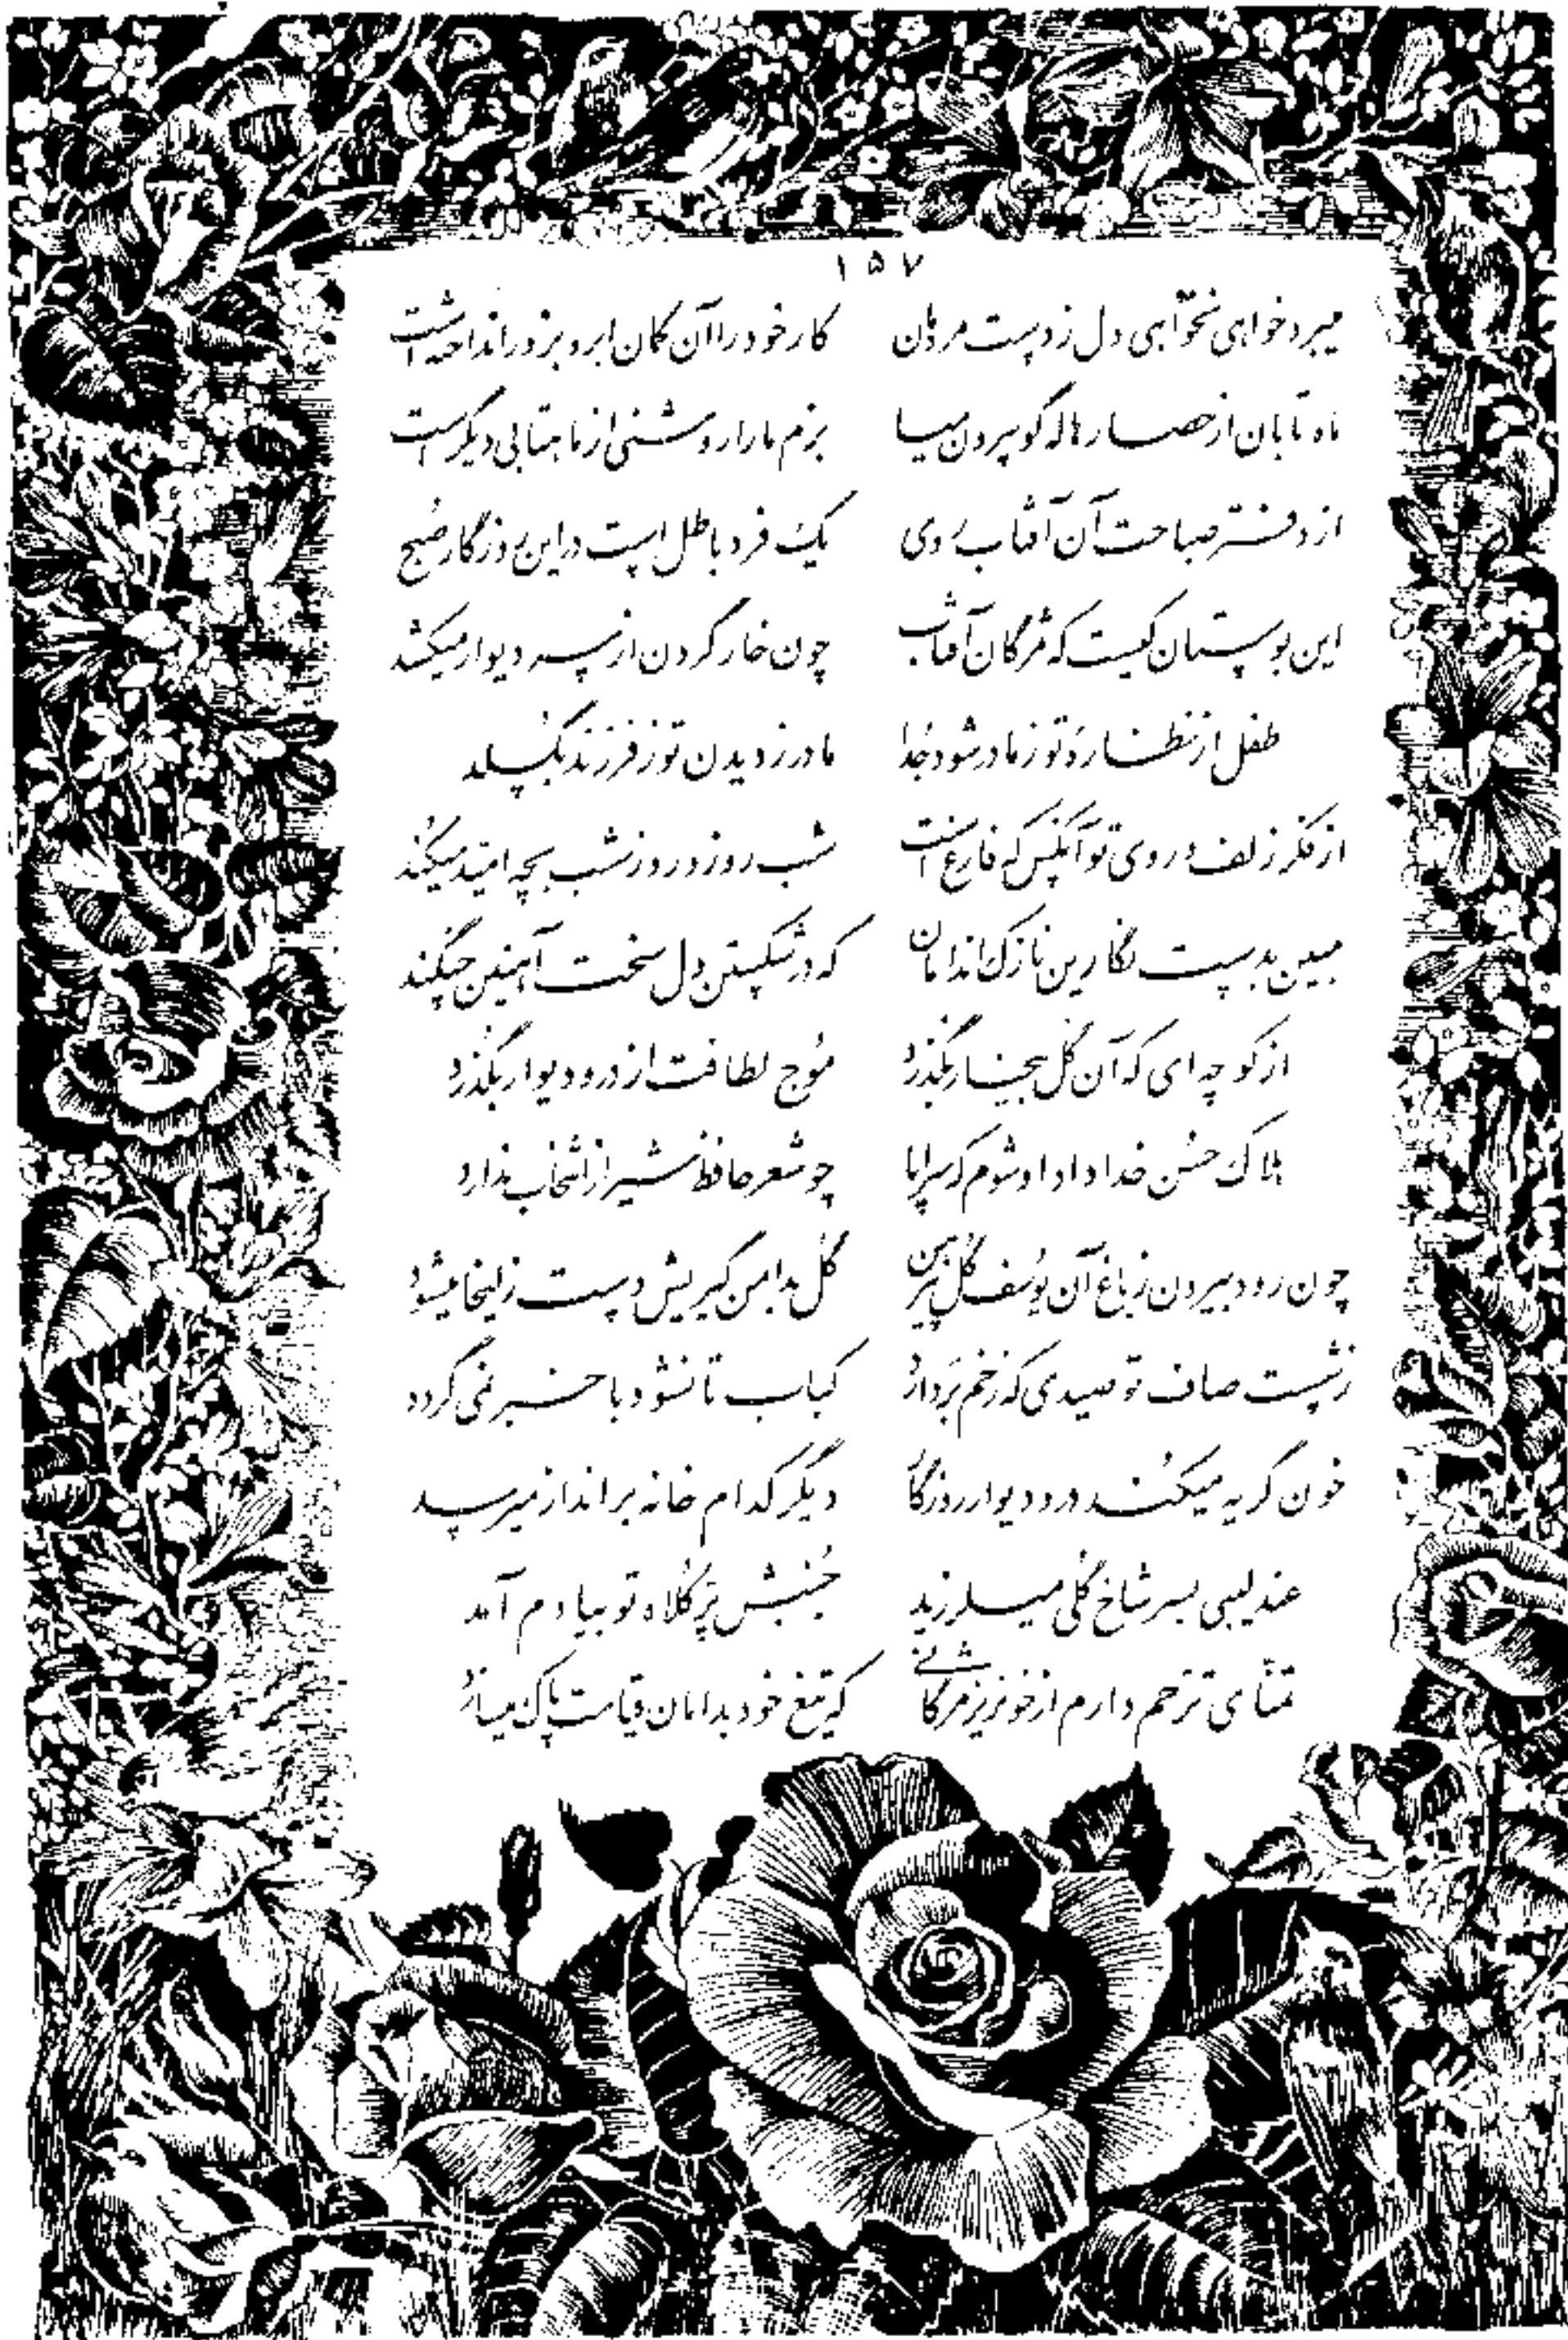 ۱۵۷
میبرد خواهی نخواهی دل ز دست مردمان کار خود را آن کمان ابرو بزور انداخته است
ماه تابان از حصار هاله گو بیرون میا بزم ما را روشنی از ماهتابی دیگر است
از دفتر صباحت آن آفتاب روی یک فرد باطل است در این روزگار صبح
این بوستان کیست که مژگان آفتاب چون خار گردن از سر دیوار میکشد
طفل از نظارهٔ تو ز مادر شود جُدا مادر ز دیدن تو ز فرزند بگسلد
از فکر زلف و روی تو آنکس که فارغ است شب روز و روز شب بچه امّید میکُند
مبین بدست نگارین نازک اندامان که در شکستن دل سخت آهنین چنگند
از کوچه ای که آن گل بیخار بگذرد مُوج لطافت از در و دیوار بگذرد
هلاک حسُن خداداد او شوم که سراپا چو شعر حافظ شیراز انتخاب ندارد
چون رود بیرون ز باغ آن یوُسف گل پیرهن گل بدامن گیریش دست زلیخا میشود
ز شست صاف تو صیدی که زخم بَردارد کباب تا نشود با خبر نمی گردد
خون گریه میکُند در و دیوار روزگار دیگر کدام خانه برانداز میرسد
عندلیبی بسر شاخ گلی میلرزید جُنبش پَر کُلاه تو بیادم آمد
تمنّای ترَحم دارم از خونریز مژگانی که تیغ خود بدامان قیامت پاک میسازد